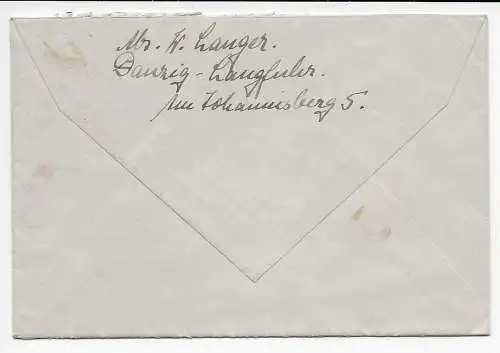 Mr. W. Langer.
Danzig-Langfuhr.
Am Johannisberg 5.